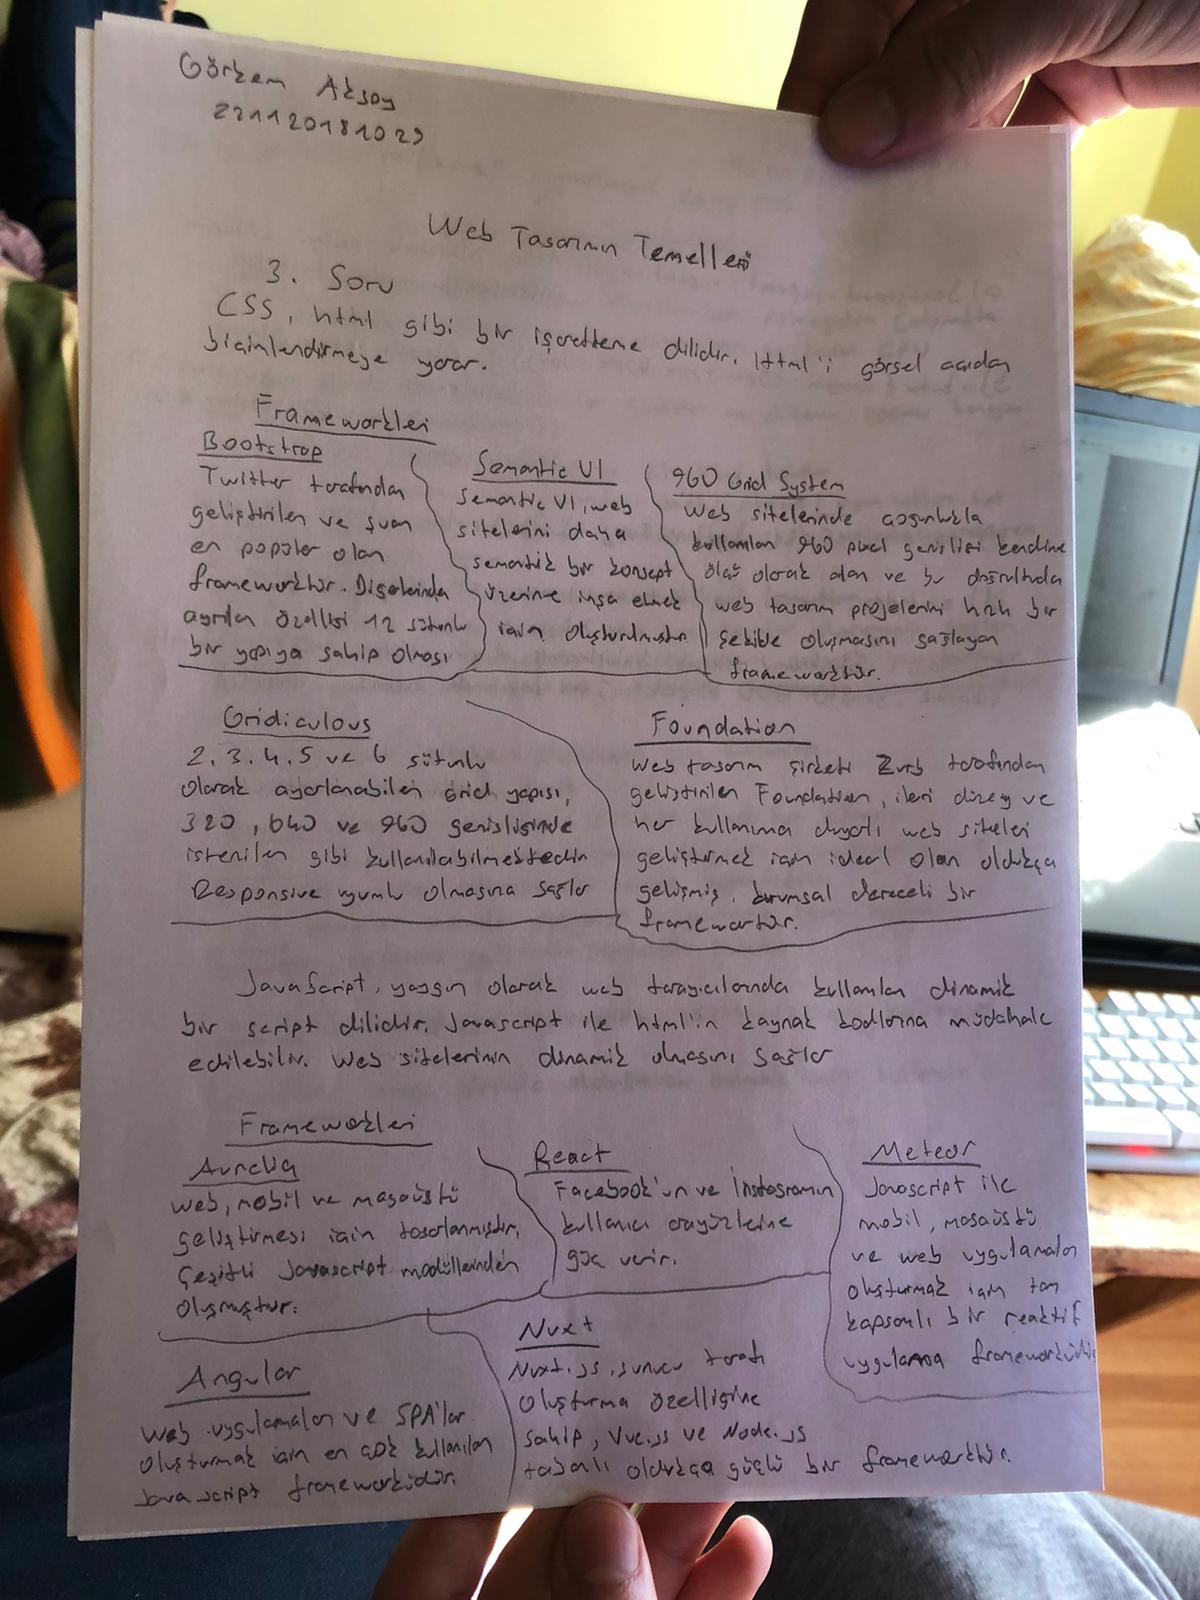 Görkem Aksoy
221120181029
Web Tasarımın Temelleri
3. Soru
CSS, html gibi bir işaretleme dilidir. Html'i görsel açıdan
biçimlendirmeye yarar.
Frameworkleri
Bootstrap
Twitter tarafından
geliştirilen ve şuan
en popüler olan
frameworktür. Diğerlerinden
ayrılan özelliği 12 sütunlu
bir yapıya sahip olması
Semantic UI
Semantic UI, web
sitelerini daha
semantik bir konsept
üzerine inşa etmek
için oluşturulmuştur
960 Grid System
Web sitelerinde çoğunlukla
kullanılan 960 pixel genişliği kendine
ölçü olarak alan ve bu doğrultuda
web tasarım projelerini hızlı bir
şekilde oluşmasını sağlayan
frameworktür.
Gridiculous
2, 3, 4, 5 ve 6 sütunlu
olarak ayarlanabilen Grid yapısı,
320, 640 ve 960 genişliğinde
istenilen gibi kullanılabilmektedir
Responsive uyumlu olmasına sağlar
Foundation
Web tasarım şirketi Zurb tarafından
geliştirilen Foundation, ileri düzey ve
her kullanıma duyarlı web siteleri
geliştirmek için ideal olan oldukça
gelişmiş, kurumsal dereceli bir
frameworktür.
JavaScript, yaygın olarak web tarayıcılarında kullanılan dinamik
bir script dilidir. Javascript ile html'in kaynak kodlarına müdahale
edilebilir. Web sitelerinin dinamik olmasını sağlar
Frameworkleri
Aurelia
Web, mobil ve masaüstü
geliştirmesi için tasarlanmıştır.
Çeşitli Javascript modüllerinden
oluşmuştur.
React
Facebook'un ve İnstagramın
kullanıcı arayüzlerine
güç verir.
Meteor
Javascript ile
mobil, masaüstü
ve web uygulamaları
oluşturmak için tam
kapsamlı bir reaktif
uygulama frameworküdür
Angular
Web uygulamaları ve SPA'lar
oluşturmak için en çok kullanılan
Javascript frameworküdür.
Nuxt
Nuxt.js, sunucu tarafı
oluşturma özelliğine
sahip, Vue.js ve Node.js
tabanlı oldukça güçlü bir frameworktür.